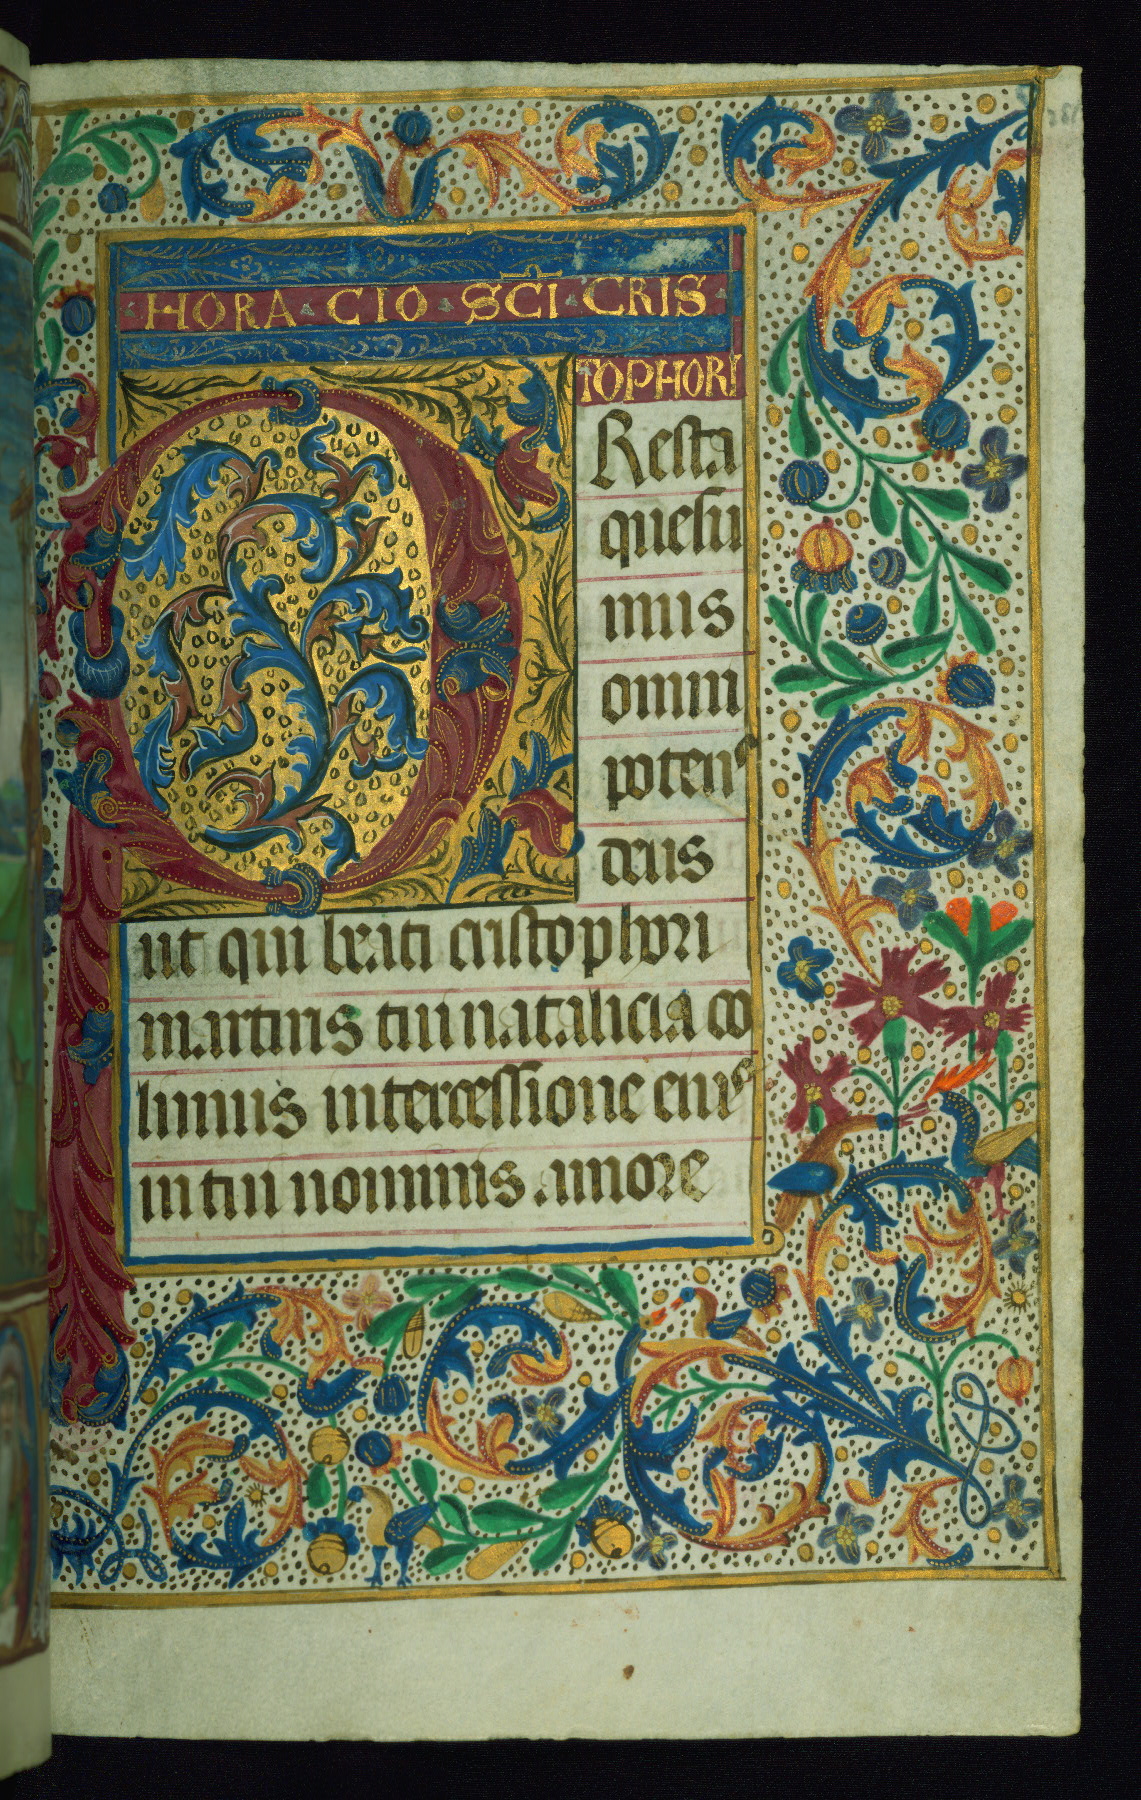 HORACIO SCI CRIS
TOPHORI
PResta
quesu
mus
omni
potens
deus
ut qui beati cristophori
martiris tui natalicia co
limus intercessione eius
in tui nominis amore